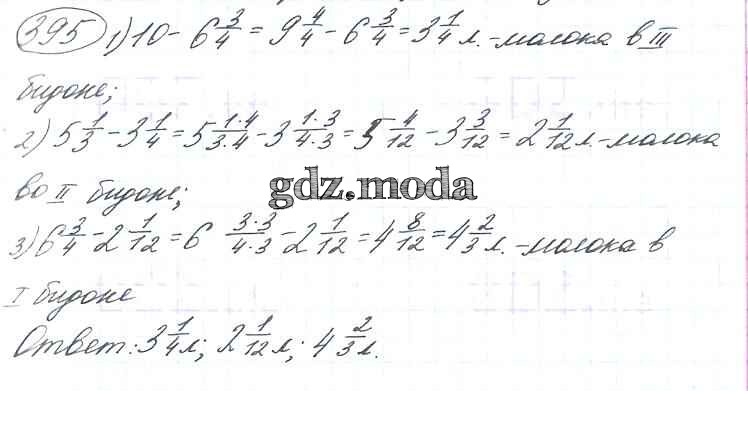 395 1) 10 - 6 3/4 = 9 4/4 - 6 3/4 = 3 1/4 л. - молока в III
бидоне;
2) 5 1/3 - 3 1/4 = 5 1·4/3·4 - 3 1·3/4·3 = 5 4/12 - 3 3/12 = 2 1/12 л. - молока
во II бидоне;
gdz.moda
3) 6 3/4 - 2 1/12 = 6 3·3/4·3 - 2 1/12 = 4 8/12 = 4 2/3 л. - молока в
I бидоне
Ответ: 3 1/4 л; 2 1/12 л; 4 2/3 л.